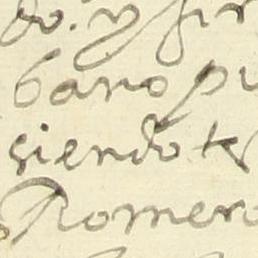 do. y fir
bano pu
siendo te
Romero